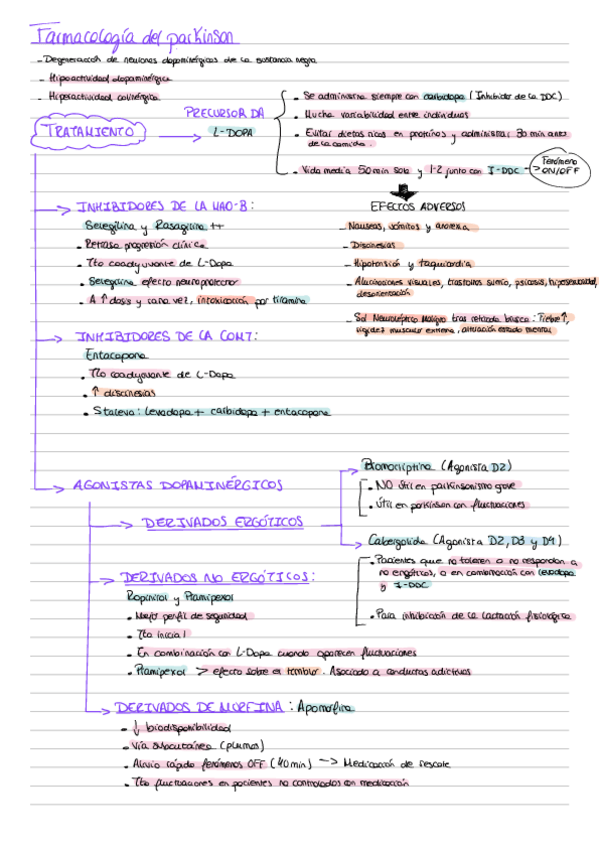 Farmacología del parkinson
- Degeneración de neuronas dopaminérgicas de la sustancia negra
- Hipoactividad dopaminérgica
- Hiperactividad colinérgica
TRATAMIENTO
PRECURSOR DA
L-DOPA
• Se administra siempre con carbidopa (Inhibidor de la DDC)
• Mucha variabilidad entre individuos
• Evitar dietas ricas en proteínas y administrar 30 min antes
de la comida.
• Vida media 50 min solo y 1-2 junto con I-DDC
Fenómeno
ON/OFF
EFECTOS ADVERSOS
- Nauseas, vómitos y anorexia
- Discinesias
- Hipotensión y taquicardia
- Alucinaciones visuales, trastorno sueño, psicosis, hipersexualidad,
desorientación
- Sd Neuroléptico Maligno tras retirada brusca: Fiebre ↑,
rigidez muscular extrema, alteración estado mental
INHIBIDORES DE LA MAO-B:
Selegilina y Rasagilina ++
• Retrasa progresión clínica
• Tto coadyuvante de L-Dopa
• Selegilina efecto neuroprotector
• A ↑ dosis y cada vez, intoxicación por tiramina
INHIBIDORES DE LA COMT:
Entacapona
• Tto coadyuvante de L-Dopa
• ↑ discinesias
• Stalevo: levodopa + carbidopa + entacapona
AGONISTAS DOPAMINÉRGICOS
DERIVADOS ERGÓTICOS
Bromocriptina (Agonista D2)
• NO útil en parkinsonismo grave
• Útil en parkinson con fluctuaciones
Cabergolida (Agonista D2, D3 y D4)
• Pacientes que no toleren o no respondan a
no ergóticos, o en combinación con levodopa
y I-DDC
• Para inhibición de la lactación fisiológica
DERIVADOS NO ERGÓTICOS:
Ropinirol y Pramipexol
• Mejor perfil de seguridad
• Tto inicial
• En combinación con L-Dopa cuando aparecen fluctuaciones
• Pramipexol > efecto sobre el temblor. Asociado a conductas adictivas
DERIVADOS DE MORFINA: Apomorfina
• ↓ biodisponibilidad
• Vía subcutánea (plumas)
• Alivio rápido fenómenos OFF (40min) -> Medicación de rescate
• Tto fluctuaciones en pacientes no controlados con medicación